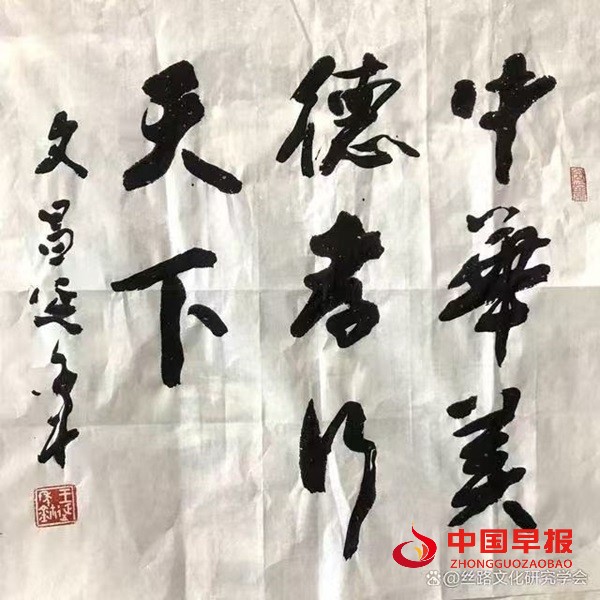 中華美
德孝行
天下
文昌延年
中国早报
ZHONGGUOZAOBAO
@丝路文化研究学会